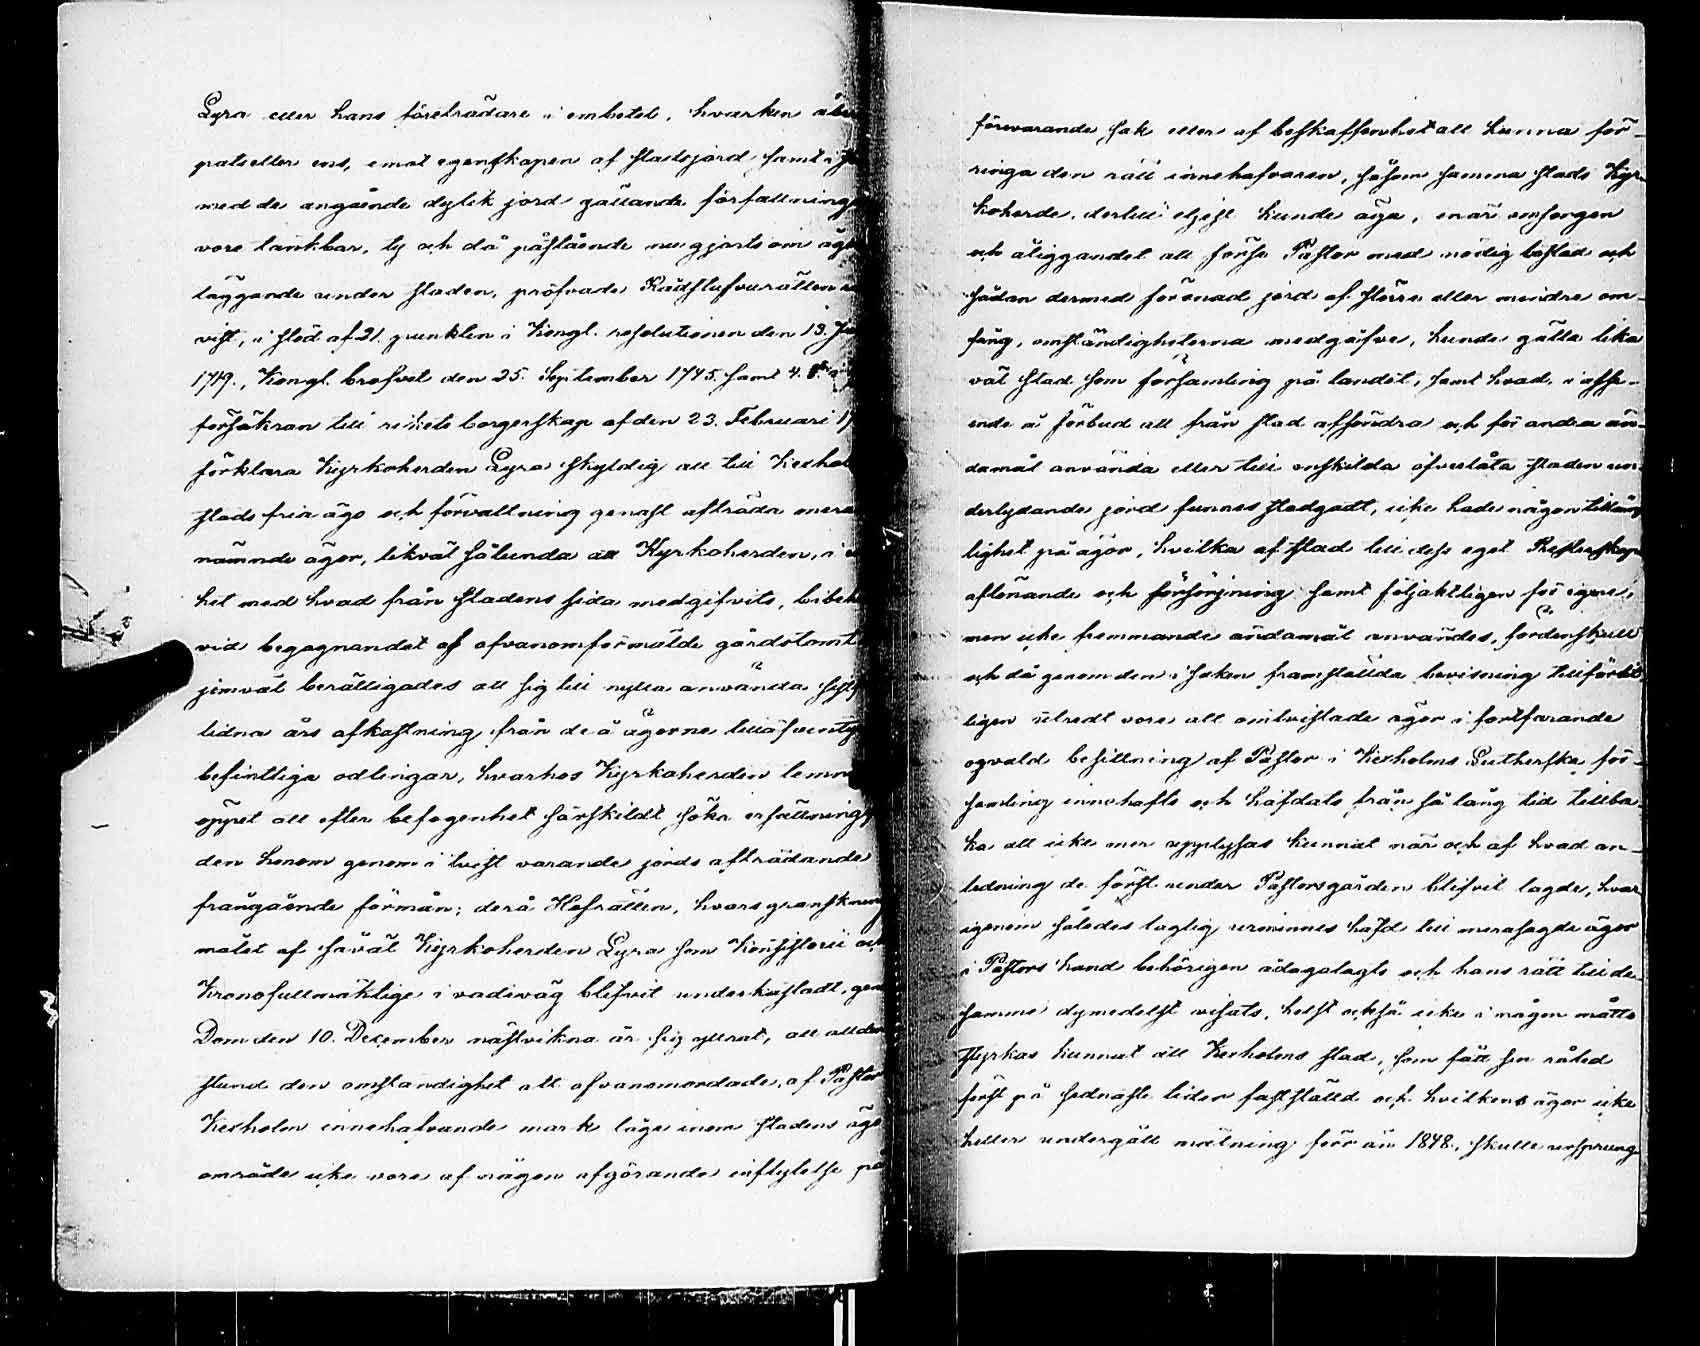 Lyra eller hans företrädare i embetet, hvarken åbe
pats eller ens, emot egenskapen af stadsjord samt i
med de angående dylik jord gällande författning
vore tänkbar, ty och då påstående nu gjorts om äg
läggande under staden, pröfvade Rådstufvurätten
vist, i stöd af 21. punkten i Kongl. resolutionen den 13. Ju
1719., Kongl. brefvet den 25. September 1745. samt 4. §
försäkran till rikets borgerskap af den 23. Februari 17
förklara Kyrkoherden Lyra skyldig att till Kexhol
stads fria ägo och förvaltning genast afträda mera
nämnde ägor, likväl sålunda att Kyrkoherden, i
het med hvad från stadens sida medgifvits, bibeh
vid begagnandet af ofvanomförmälde gårdstomt
jemväl berättigades att sig till nytta använda sist
lidna års afkastning från de å ägorne tilläfventy
befintliga odlingar, hvarhos Kyrkoherden lemn
öppet att efter befogenhet särskildt söka ersättning
den honom genom i tvist varande jords afträdande
frångående förmån; derå Hofrätten, hvars granskning
målet af såväl Kyrkoherden Lyra som Konsistorii och
Kronofullmäktige i vadeväg blifvit underkastadt, gen
Dom den 10. December nästvikna år sig yttrat, att allden
stund den omständighet att ofvanomordade, af Pastor
Kexholm innehafvande mark läge inom stadens ägo
område icke vore af någon afgörande inflytelse på
förevarande sak eller af beskaffenhet att kunna för-
ringa den rätt innehafvaren, såsom samma stads Kyr-
koherde, dertill eljest kunde äga, enär omsorgen
och åliggandet att förse Pastor med nödig bostad och
sådan dermed förenad jord af större eller mindre om-
fång, omständigheterna medgåfve, kunde gälla lika
väl stad som församling på landet, samt hvad, i afse-
ende å förbud att från stad afsöndra och för andra än-
damål använda eller till enskilda öfverlåta staden un-
derlydande jord funnes stadgadt, icke hade någon tillämp
lighet på ägor, hvilka af stad till dess eget Presterskaps
aflönande och försörjning samt följaktligen för egna,
men icke fremmande ändamål användes, fördenskull
och då genom den i saken framställda bevisning tillförlit
ligen utredt vore att omtvistade ägor i fortfarande
oqvald besittning af Pastor i Kexholms Lutherska för-
samling innehafts och häfdats från så lång tid tillba-
ka att icke mer upplysas kunnat när och af hvad an-
ledning de först under Pastorsgården blifvit lagde, hvar
igenom således laglig urminnes häfd till merasagde ägor
i Pastors hand behörigen ådagalagts och hans rätt till de-
samma dymedelst visats, helst också icke i någon måtto
styrkas kunnat att Kexholms stad, som fått sin råted
först på sednaste tider fastställd och hvilkens ägor icke
heller undergått mätning förr än 1848., skulle ursprung